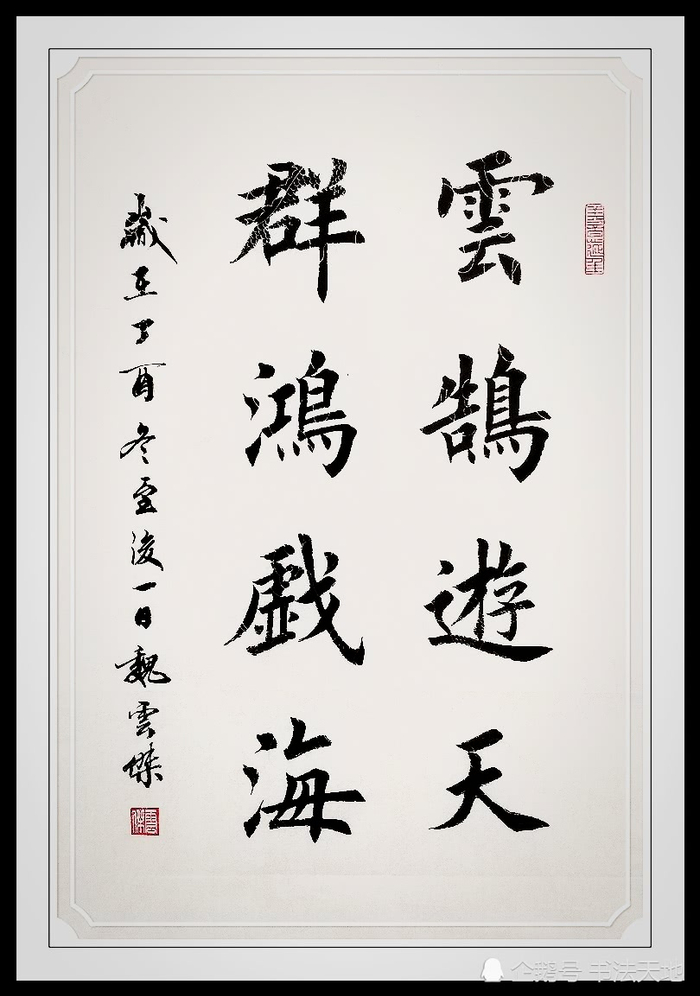 雲鵠遊天
群鴻戯海
歲在丁酉冬至後一日魏雲傑
企鹅号 书法天地